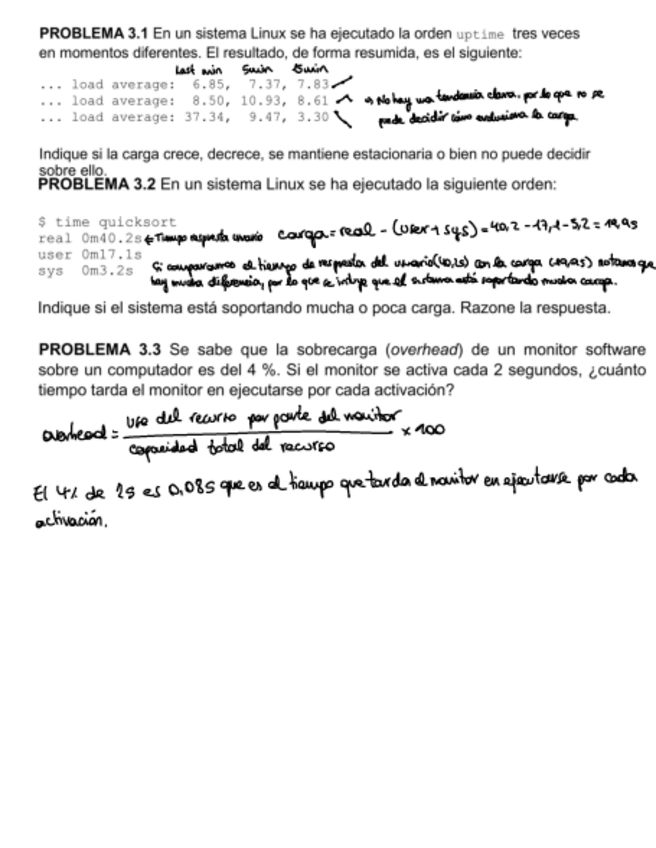 PROBLEMA 3.1 En un sistema Linux se ha ejecutado la orden uptime tres veces
en momentos diferentes. El resultado, de forma resumida, es el siguiente:
Last min 5min 15min
... load average: 6.85, 7.37, 7.83
... load average: 8.50, 10.93, 8.61 → No hay una tendencia clara, por lo que no se
... load average: 37.34, 9.47, 3.30 puede decidir cómo evoluciona la carga.
Indique si la carga crece, decrece, se mantiene estacionaria o bien no puede decidir
sobre ello.
PROBLEMA 3.2 En un sistema Linux se ha ejecutado la siguiente orden:
$ time quicksort
real 0m40.2s ← Tiempo respuesta usuario carga = real - (user + sys) = 40,2 - 17,1 - 3,2 = 19,9s
user 0m17.1s
sys 0m3.2s Si comparamos el tiempo de respuesta del usuario (40,2s) con la carga (19,9s) notamos que
hay mucha diferencia, por lo que se intuye que el sistema está soportando mucha carga.
Indique si el sistema está soportando mucha o poca carga. Razone la respuesta.
PROBLEMA 3.3 Se sabe que la sobrecarga (overhead) de un monitor software
sobre un computador es del 4 %. Si el monitor se activa cada 2 segundos, ¿cuánto
tiempo tarda el monitor en ejecutarse por cada activación?
overhead = uso del recurso por parte del monitor
capacidad total del recurso × 100
El 4% de 2s es 0,08s que es el tiempo que tarda el monitor en ejecutarse por cada
activación.